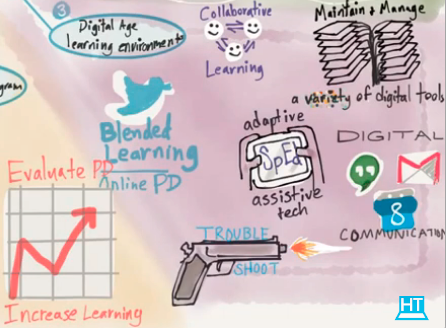 3
Digital Age
learning environments
Collaborative
Learning
Maintain + Manage
a variety of digital tools
gram
Blended
Learning
Online PD
adaptive
SpEd
assistive
tech
DIGITAL
8
COMMUNICATION
Evaluate PD
Increase Learning
TROUBLE
SHOOT
HT